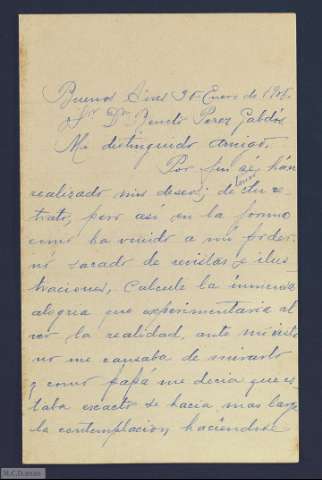 Buenos Aires 30 Enero de 190
Sr Dn Benito Perez Galdós
Mi distinguido amigo,
Por fin sé hán
realizado mis deseos, de tener su re-
trato, pero así en la forma
como ha venido a mi poder.
nó sacado de revistas e ilus-
traciones, Calcule la inmensa
alegria que experimentaria al
ver la realidad, ante mi vista
no me cansaba de mirarlo
y como papá me decia que es-
taba exacto se hacia mas larga
la contemplacion haciendose